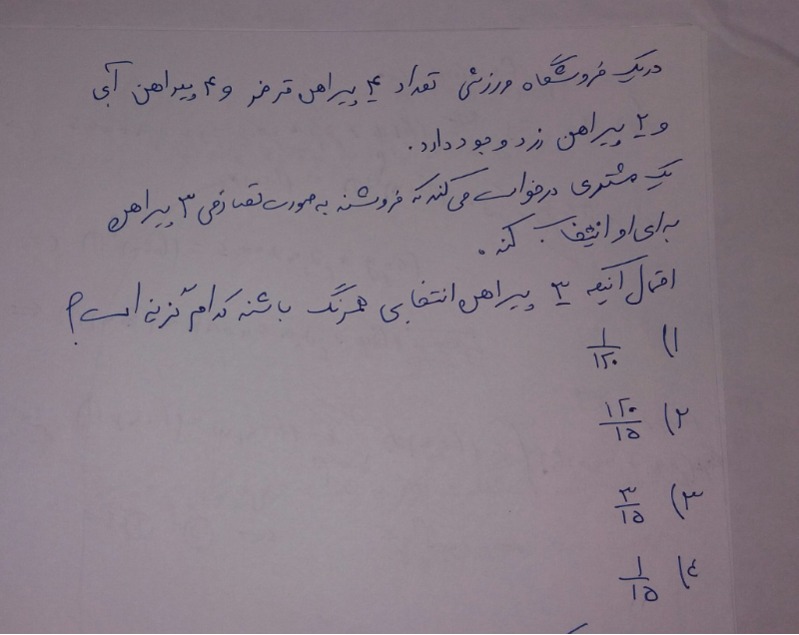 در یک فروشگاه ورزشی تعداد ۴ پیراهن قرمز و ۴ پیراهن آبی
و ۲ پیراهن زرد وجود دارد.
یک مشتری درخواست می کند که فروشنده به صورت تصادفی ۳ پیراهن
برای او انتخاب کند.
احتمال آنکه ۳ پیراهن انتخابی همرنگ باشند کدام گزینه است؟
۱) ۱/۱۲۰
۲) ۱۲۰/۱۵
۳) ۳/۱۵
۴) ۱/۱۵